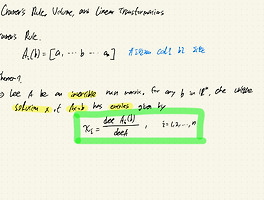 Cramer's Rule, Volume, and Linear Transformations
Cramer's Rule
Aᵢ(b) = [a₁ ... b ... aₙ]
Let A be an invertible nxn matrix, for any b in ℝⁿ, the unique
solution x of Ax=b has entries given by
xᵢ = det Aᵢ(b) / det A , i=1,2,...,n